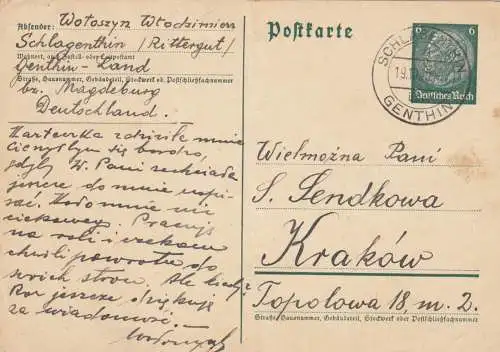 Absender: Wołoszyn Włodzimierz
Schlagenthin (Rittergut)
Wohnort, auch Zustell- oder Leitpostamt
Genthin-Land
Straße, Hausnummer, Gebäudeteil, Stockwerk od. Postschließfachnummer
bz. Magdeburg
Deutschland.
Kartecka zdziwiła mnie
Cieszyłem się bardzo,
gdyby W. Pani zechciała
jeszcze do mnie napi-
sać. Koło mnie nic
ciekawego. Pracuję
na roli i czekam
chwili powrotu do
swoich stron. Ale kiedy?
Raz jeszcze dziękuję
za wiadomość. —
Postkarte
6 6
Deutsches Reich
SCHLAGENTHIN
19.
GENTHIN
Wielmożna Pani
S. Sendkowa
Kraków
Topolowa 18, m. 2.
Straße, Hausnummer, Gebäudeteil, Stockwerk oder Postschließfachnummer